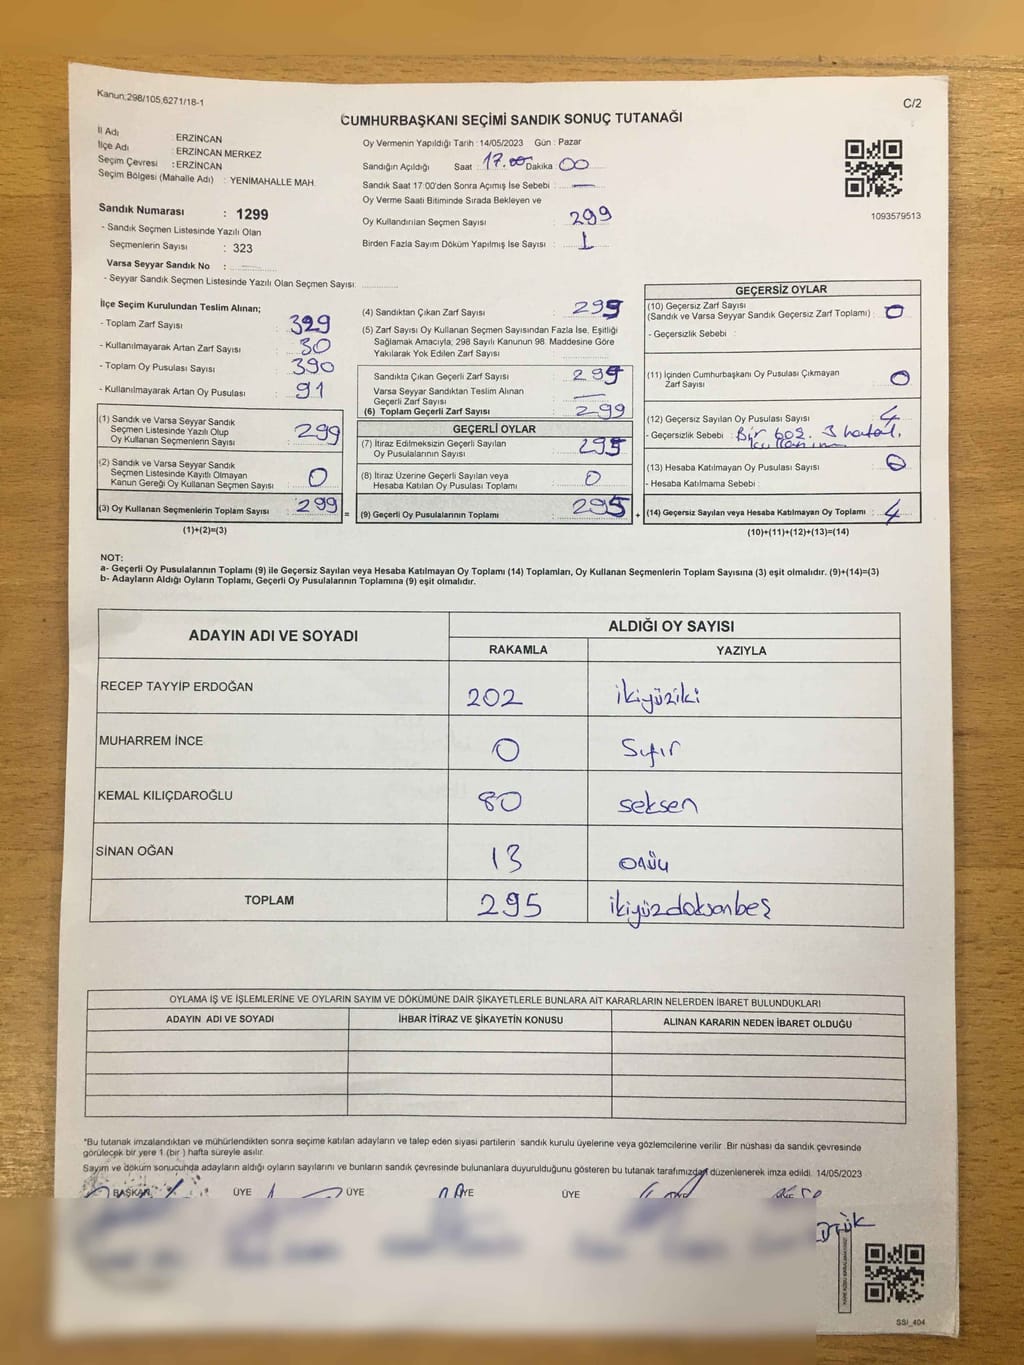 Kanun;298/105,6271/18-1
C/2
CUMHURBAŞKANI SEÇİMİ SANDIK SONUÇ TUTANAĞI
İl Adı : ERZİNCAN
İlçe Adı : ERZİNCAN MERKEZ
Seçim Çevresi : ERZİNCAN
Seçim Bölgesi (Mahalle Adı) : YENİMAHALLE MAH.
Sandık Numarası : 1299
- Sandık Seçmen Listesinde Yazılı Olan
Seçmenlerin Sayısı : 323
Varsa Seyyar Sandık No :
- Seyyar Sandık Seçmen Listesinde Yazılı Olan Seçmen Sayısı:
Oy Vermenin Yapıldığı Tarih : 14/05/2023 Gün : Pazar
Sandığın Açıldığı Saat : 17.00 Dakika : 00
Sandık Saat 17:00'den Sonra Açımış İse Sebebi : —
Oy Verme Saati Bitiminde Sırada Bekleyen ve
Oy Kullandırılan Seçmen Sayısı : 299
Birden Fazla Sayım Döküm Yapılmış İse Sayısı : 1
1093579513
İlçe Seçim Kurulundan Teslim Alınan;
- Toplam Zarf Sayısı : 329
- Kullanılmayarak Artan Zarf Sayısı : 30
- Toplam Oy Pusulası Sayısı : 390
- Kullanılmayarak Artan Oy Pusulası : 91
(1) Sandık ve Varsa Seyyar Sandık
Seçmen Listesinde Yazılı Olup
Oy Kullanan Seçmenlerin Sayısı : 299
(2) Sandık ve Varsa Seyyar Sandık
Seçmen Listesinde Kayıtlı Olmayan
Kanun Gereği Oy Kullanan Seçmen Sayısı : 0
(3) Oy Kullanan Seçmenlerin Toplam Sayısı : 299
(1)+(2)=(3)
(4) Sandıktan Çıkan Zarf Sayısı : 299
(5) Zarf Sayısı Oy Kullanan Seçmen Sayısından Fazla İse, Eşitliği
Sağlamak Amacıyla, 298 Sayılı Kanunun 98. Maddesine Göre
Yakılarak Yok Edilen Zarf Sayısı :
Sandıkta Çıkan Geçerli Zarf Sayısı : 299
Varsa Seyyar Sandıktan Teslim Alınan
Geçerli Zarf Sayısı : —
(6) Toplam Geçerli Zarf Sayısı : 299
GEÇERLİ OYLAR
(7) İtiraz Edilmeksizin Geçerli Sayılan
Oy Pusulalarının Sayısı : 295
(8) İtiraz Üzerine Geçerli Sayılan veya
Hesaba Katılan Oy Pusulası Toplamı : 0
= (9) Geçerli Oy Pusulalarının Toplamı : 295 +
GEÇERSİZ OYLAR
(10) Geçersiz Zarf Sayısı
(Sandık ve Varsa Seyyar Sandık Geçersiz Zarf Toplamı) : 0
- Geçersizlik Sebebi :
(11) İçinden Cumhurbaşkanı Oy Pusulası Çıkmayan
Zarf Sayısı : 0
(12) Geçersiz Sayılan Oy Pusulası Sayısı : 4
- Geçersizlik Sebebi : Bir boş. 3 hatalı
(13) Hesaba Katılmayan Oy Pusulası Sayısı : 0
- Hesaba Katılmama Sebebi :
(14) Geçersiz Sayılan veya Hesaba Katılmayan Oy Toplamı : 4
(10)+(11)+(12)+(13)=(14)
NOT:
a- Geçerli Oy Pusulalarının Toplamı (9) ile Geçersiz Sayılan veya Hesaba Katılmayan Oy Toplamı (14) Toplamları, Oy Kullanan Seçmenlerin Toplam Sayısına (3) eşit olmalıdır. (9)+(14)=(3)
b- Adayların Aldığı Oyların Toplamı, Geçerli Oy Pusulalarının Toplamına (9) eşit olmalıdır.
ADAYIN ADI VE SOYADI
ALDIĞI OY SAYISI
RAKAMLA YAZIYLA
RECEP TAYYİP ERDOĞAN 202 ikiyüziki
MUHARREM İNCE 0 Sıfır
KEMAL KILIÇDAROĞLU 80 seksen
SİNAN OĞAN 13 onüç
TOPLAM 295 ikiyüzdoksanbeş
OYLAMA İŞ VE İŞLEMLERİNE VE OYLARIN SAYIM VE DÖKÜMÜNE DAİR ŞİKAYETLERLE BUNLARA AİT KARARLARIN NELERDEN İBARET BULUNDUKLARI
ADAYIN ADI VE SOYADI İHBAR İTİRAZ VE ŞİKAYETİN KONUSU ALINAN KARARIN NEDEN İBARET OLDUĞU
*Bu tutanak imzalandıktan ve mühürlendikten sonra seçime katılan adayların ve talep eden siyasi partilerin sandık kurulu üyelerine veya gözlemcilerine verilir. Bir nüshası da sandık çevresinde
görülecek bir yere 1 (bir ) hafta süreyle asılır.
Sayım ve döküm sonucunda adayların aldığı oyların sayılarını ve bunların sandık çevresinde bulunanlara duyurulduğunu gösteren bu tutanak tarafımızdan düzenlenerek imza edildi. 14/05/2023
BAŞKAN ÜYE ÜYE ÜYE ÜYE
SSI_404